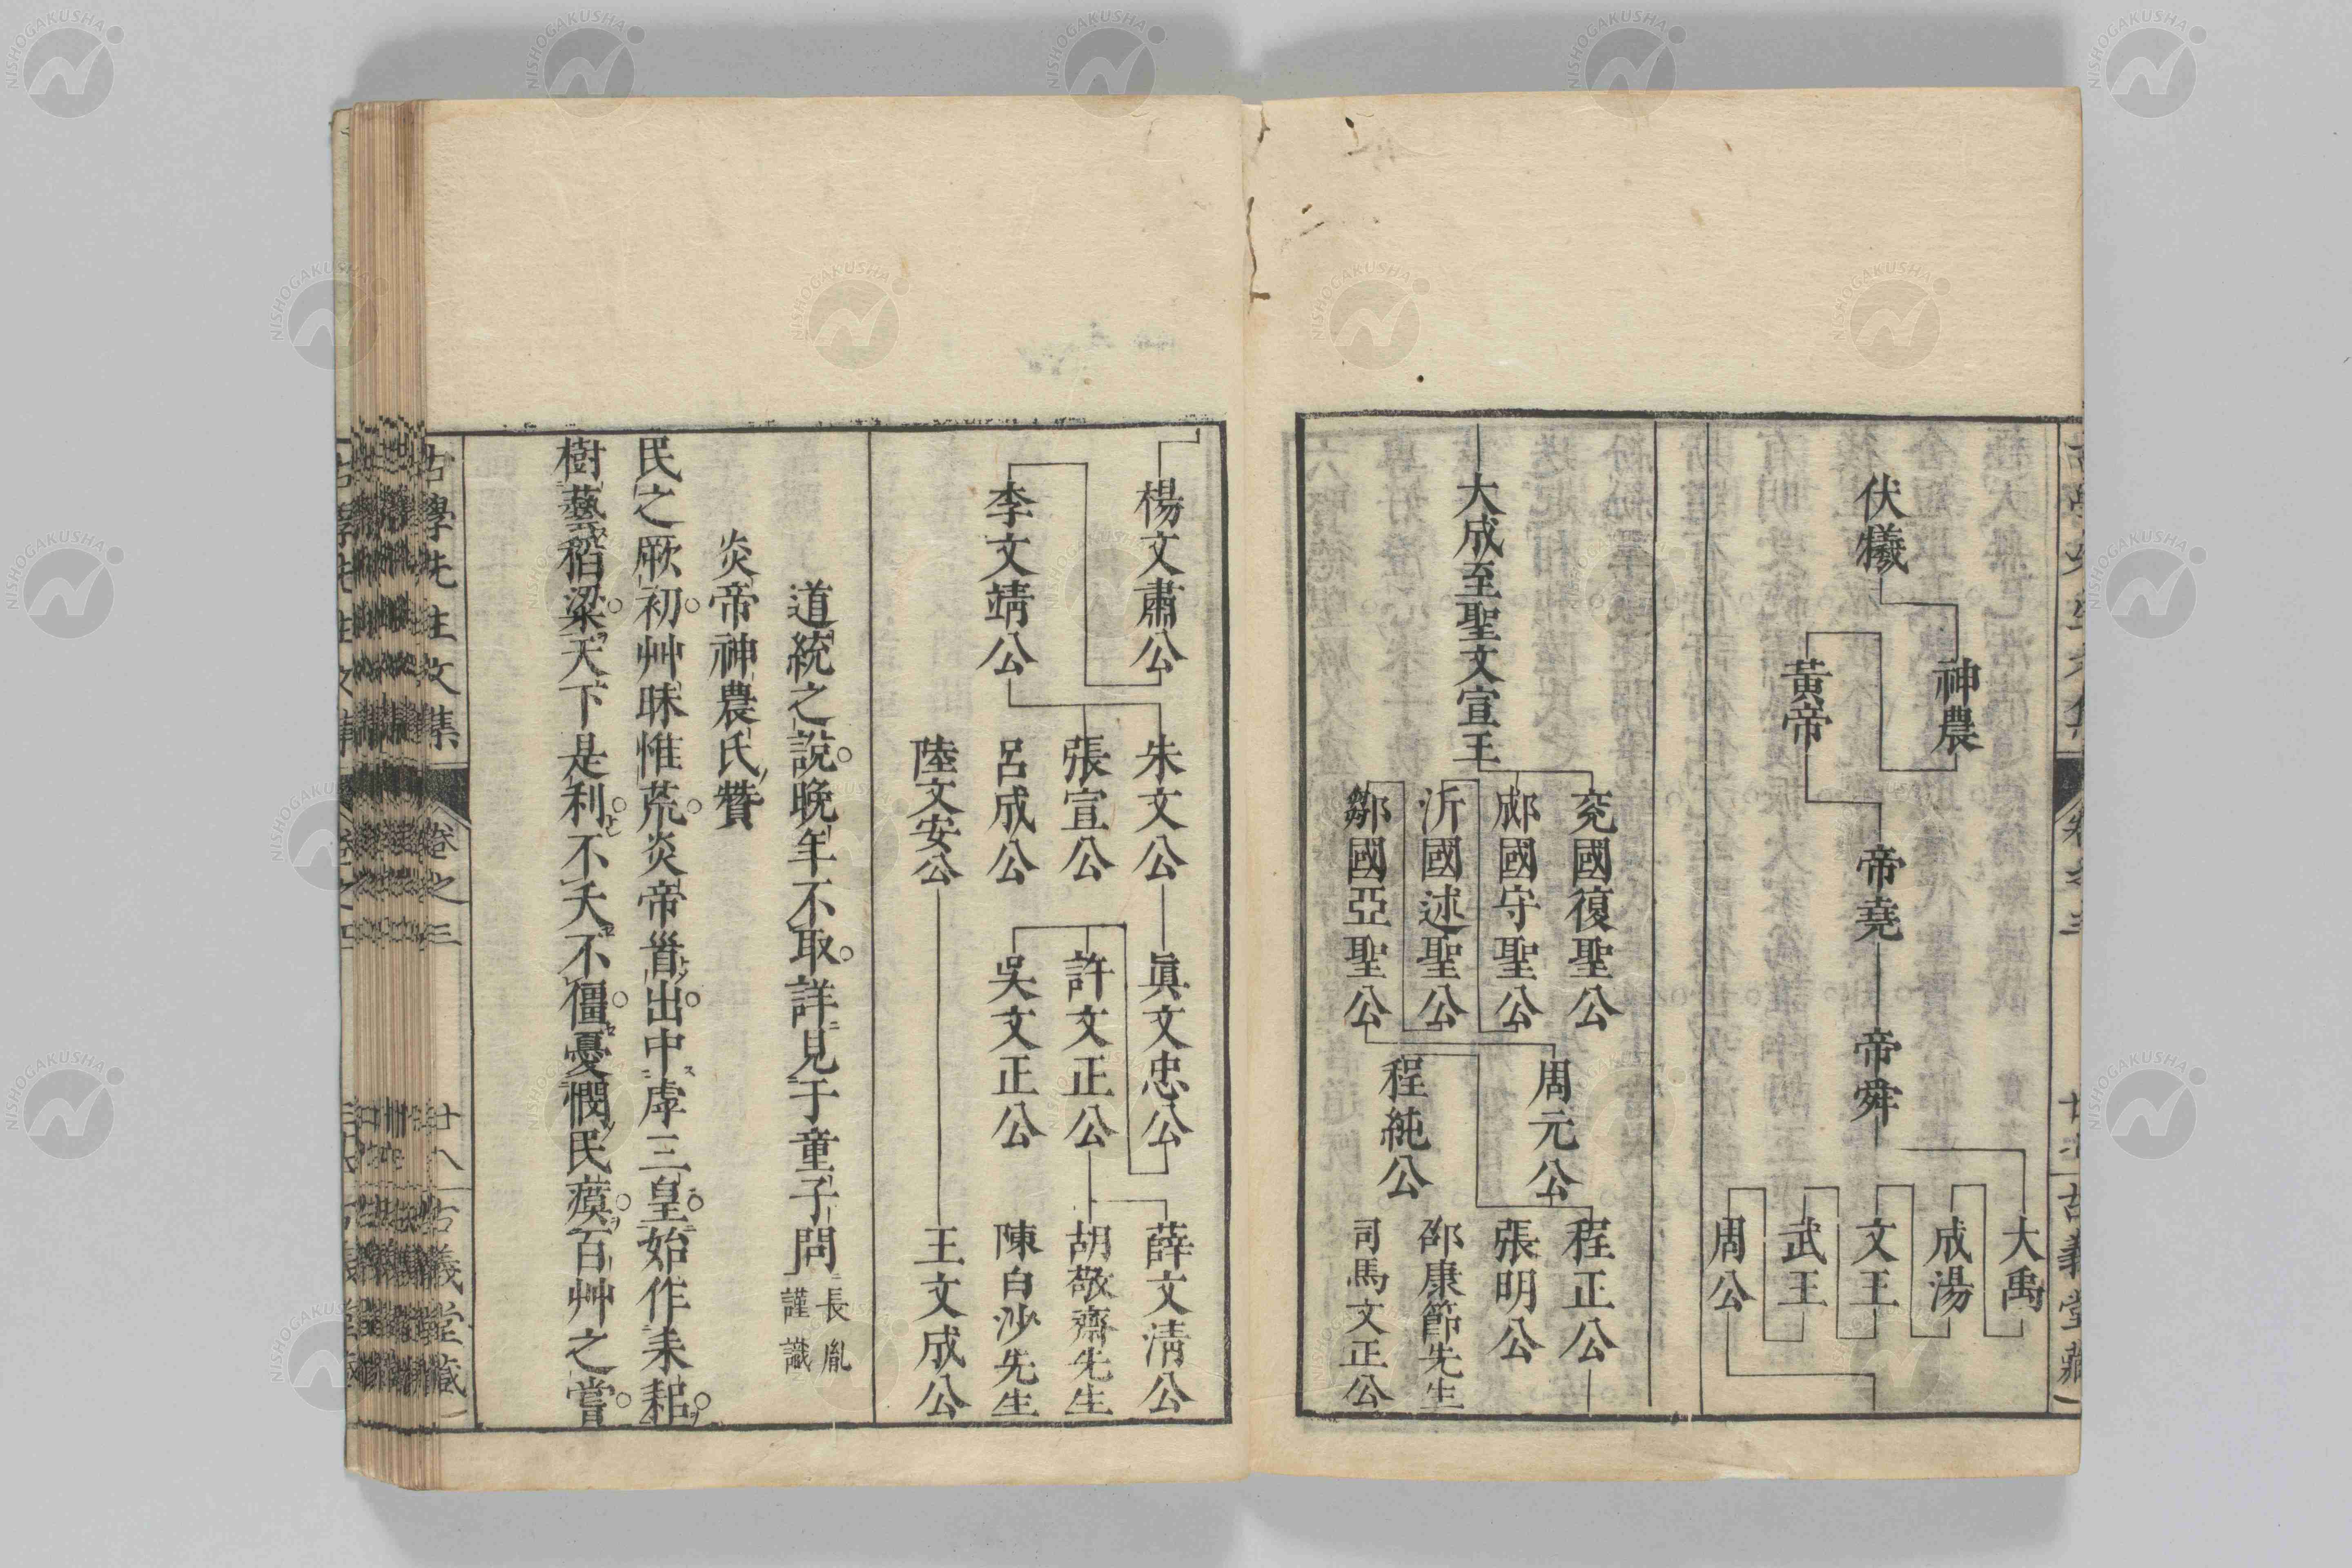 伏犧
神農
黃帝
帝堯
帝舜
大禹
成湯
文王
武王
周公
大成至聖文宣王
兗國復聖公
郕國守聖公
沂國述聖公
鄒國亞聖公
周元公
程純公
程正公
張明公
邵康節先生
司馬文正公
楊文肅公
李文靖公
朱文公
張宣公
呂成公
陸文安公
眞文忠公
許文正公
吳文正公
薛文淸公
胡敬齋先生
陳白沙先生
王文成公
道統之說晚年不取詳見于童子問
長胤
謹識
炎帝神農氏贊
民之厥初艸昧惟荒炎帝首出中虖三皇始作耒耜
樹藝稻粱天下是利不夭不僵憂憫民瘼百艸之嘗
古學先生文集
卷之三
廿八
古義堂藏
NISHOGAKUSHA